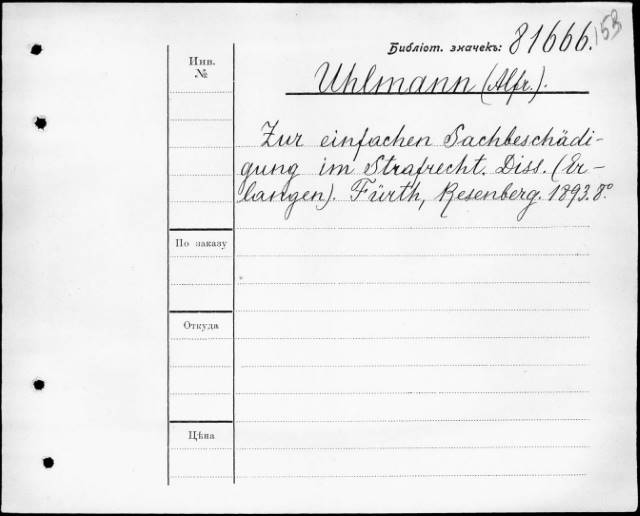 Библіот. значекъ: 81666. 153
Инв.
№
Uhlmann (Alfr.).
Zur einfachen Sachbeschädi-
gung im Strafrecht. Diss. (Er-
langen). Fürth, Resenberg. 1893. 8°.
По заказу
Откуда
Цѣна